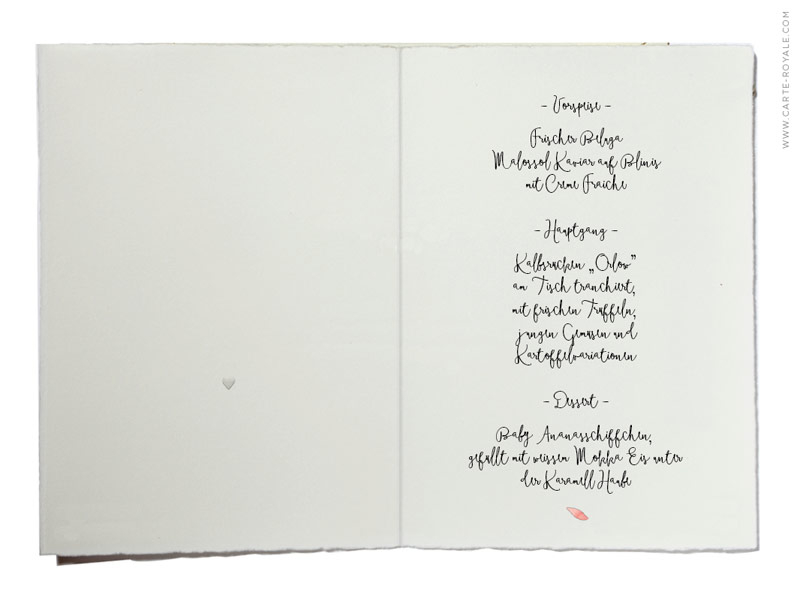 – Vorspeise –
Frischer Beluga
Malossol Kaviar auf Blinis
mit Creme Fraiche
– Hauptgang –
Kalbsrucken „Orlow”
am Tisch tranchiert,
mit frischen Truffeln,
jungen Gemusen und
Kartoffelvariationen
– Dessert –
Baby Ananasschiffchen,
gefullt mit weissem Mokka Eis unter
der Karamell Haube
WWW.CARTE-ROYALE.COM